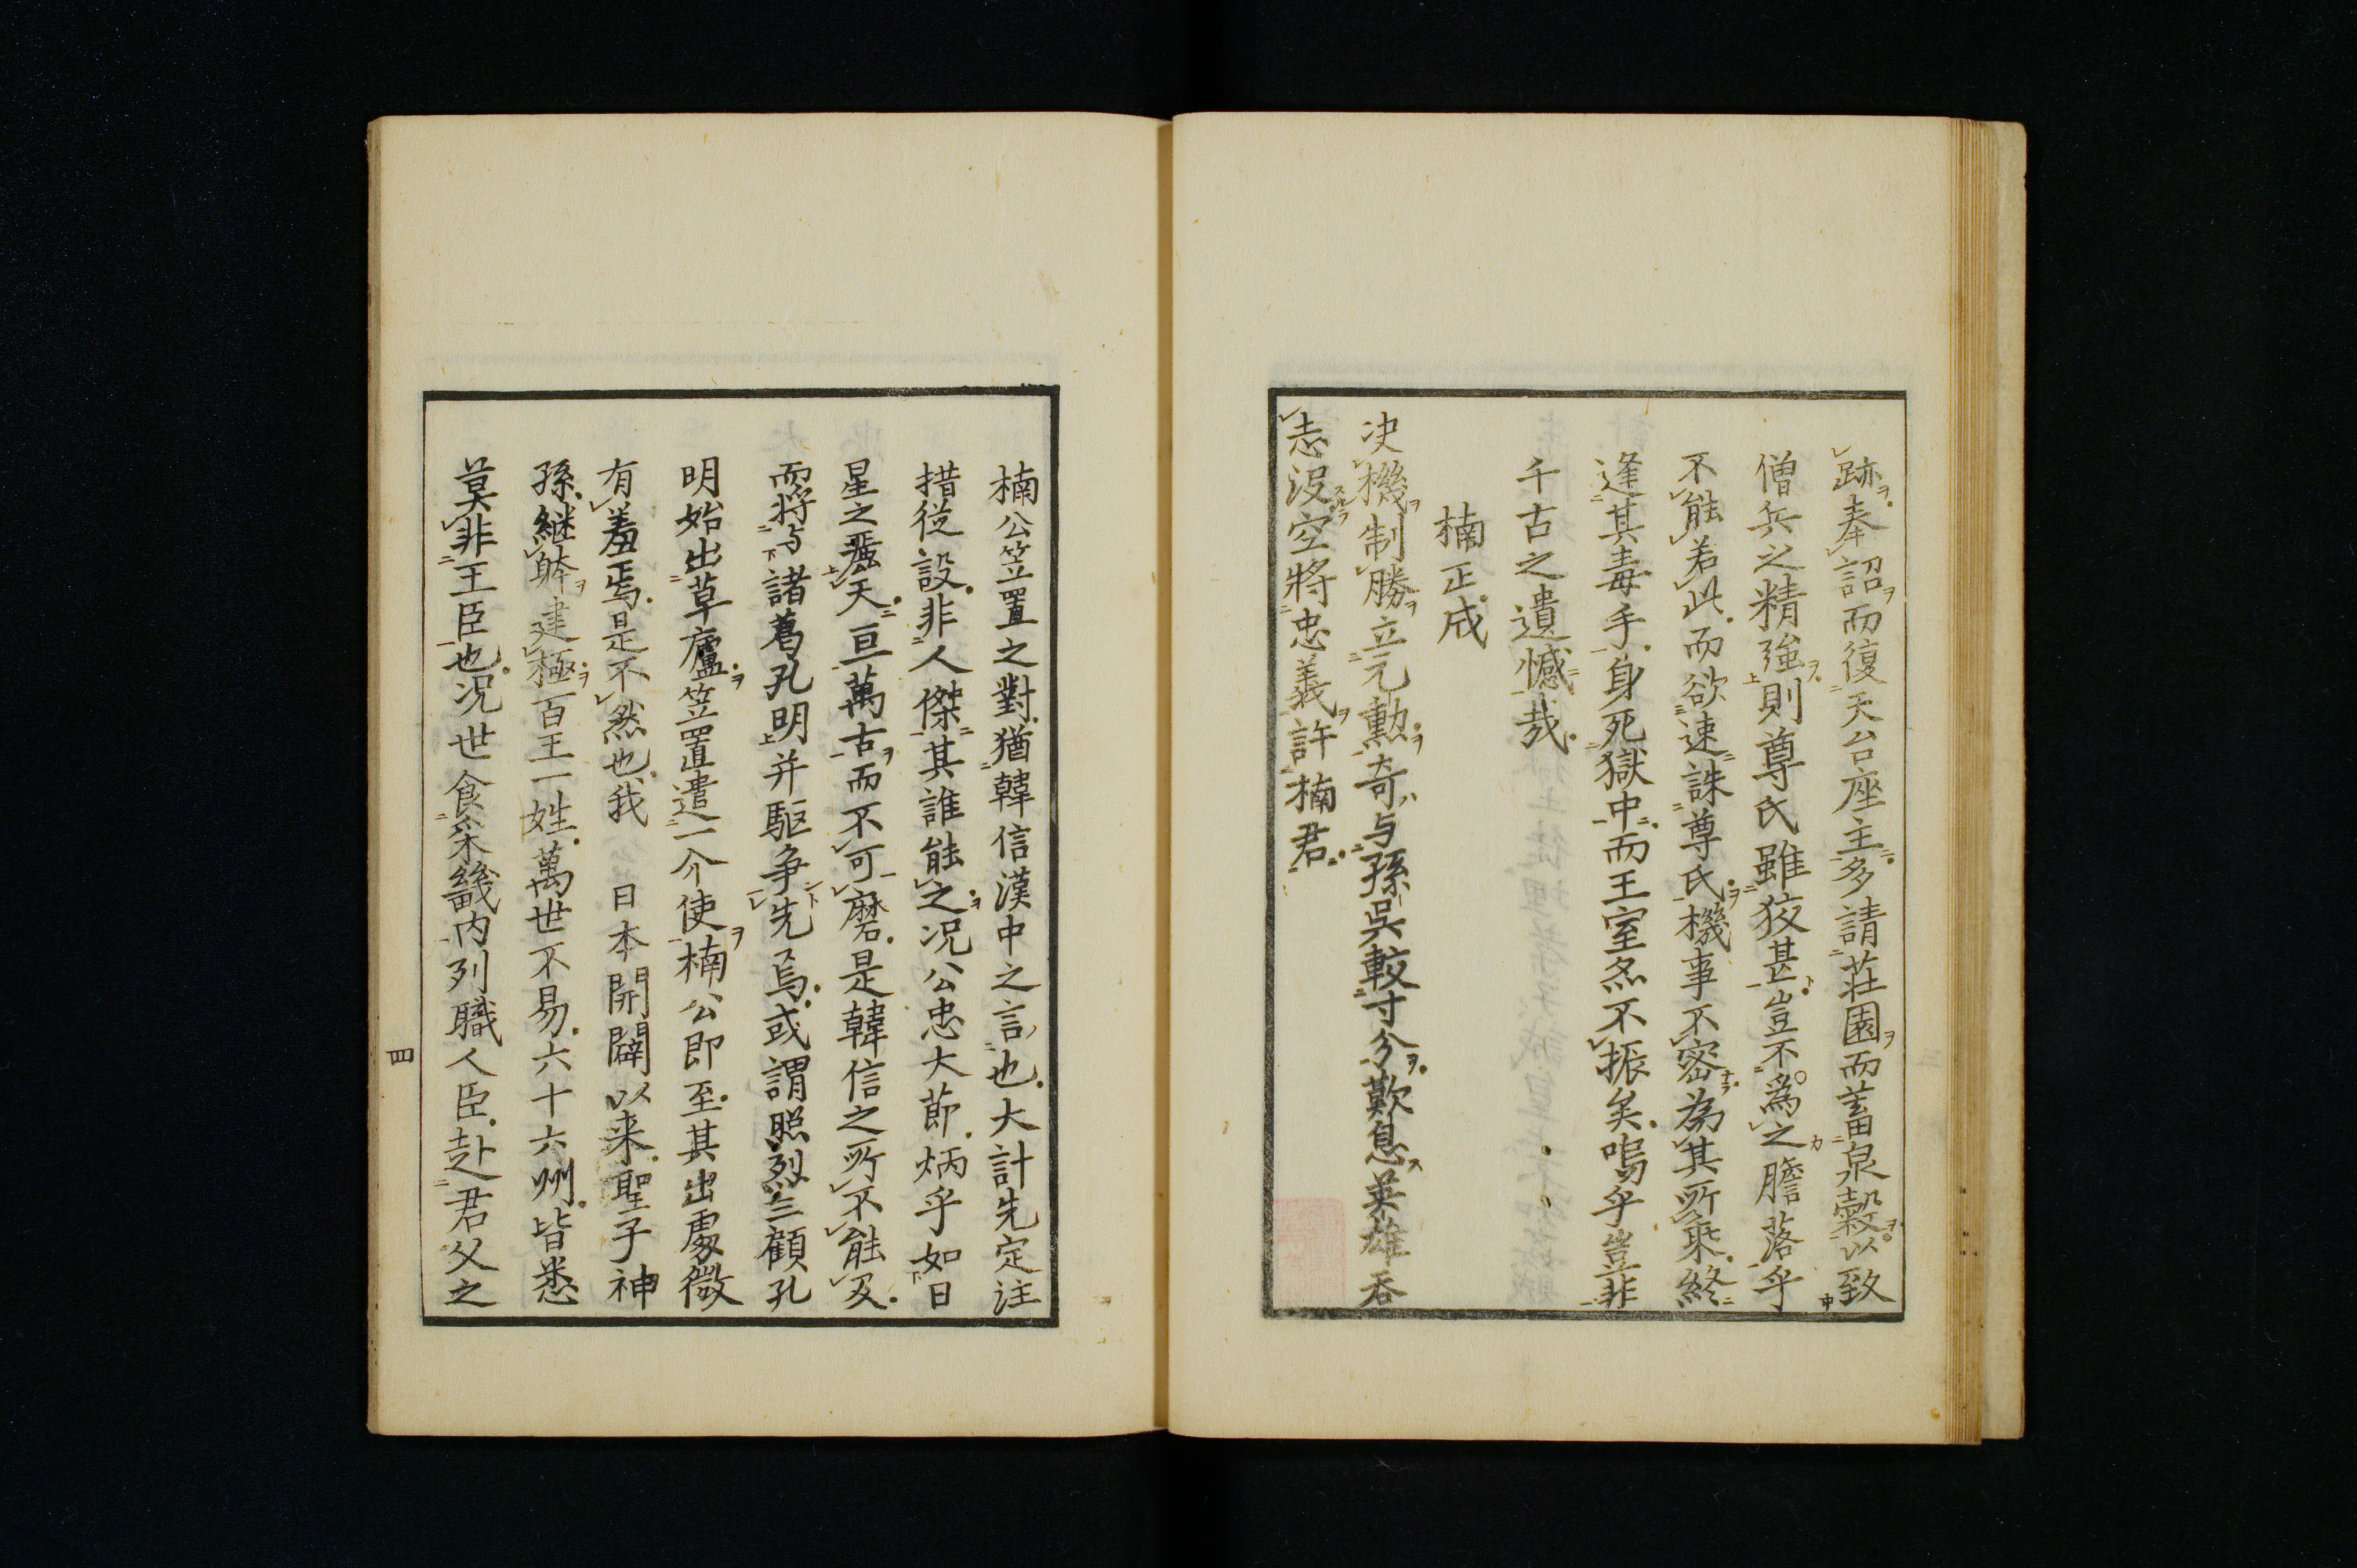 跡奉詔而復天台座主多請莊園而蓄泉穀以致
僧兵之精強則尊氏雖狡甚豈不為之膽落乎
不能若此而欲速誅尊氏機事不密為其所乘終
逢其毒手身死獄中而王室炁不振矣嗚乎豈非
千古之遺憾哉
楠正成
决機制勝立元勳奇与孫吳較寸分歎息英雄吞
志没空將忠義許楠君
楠公笠置之對猶韓信漢中之言也大計先定注
措從設非人傑其誰能之况公忠大節炳乎如日
星之麗天亘萬古而不可磨是韓信之所不能及
而將与諸葛孔明并駆争先焉或謂照烈三顧孔
明始出草廬笠置遣一介使楠公即至其出處微
有羞焉是不然也我 日本開闢以来聖子神
孫継躰建極百王一姓萬世不易六十六州皆悉
莫非王臣也况世食采畿内列職人臣赴君父之
四